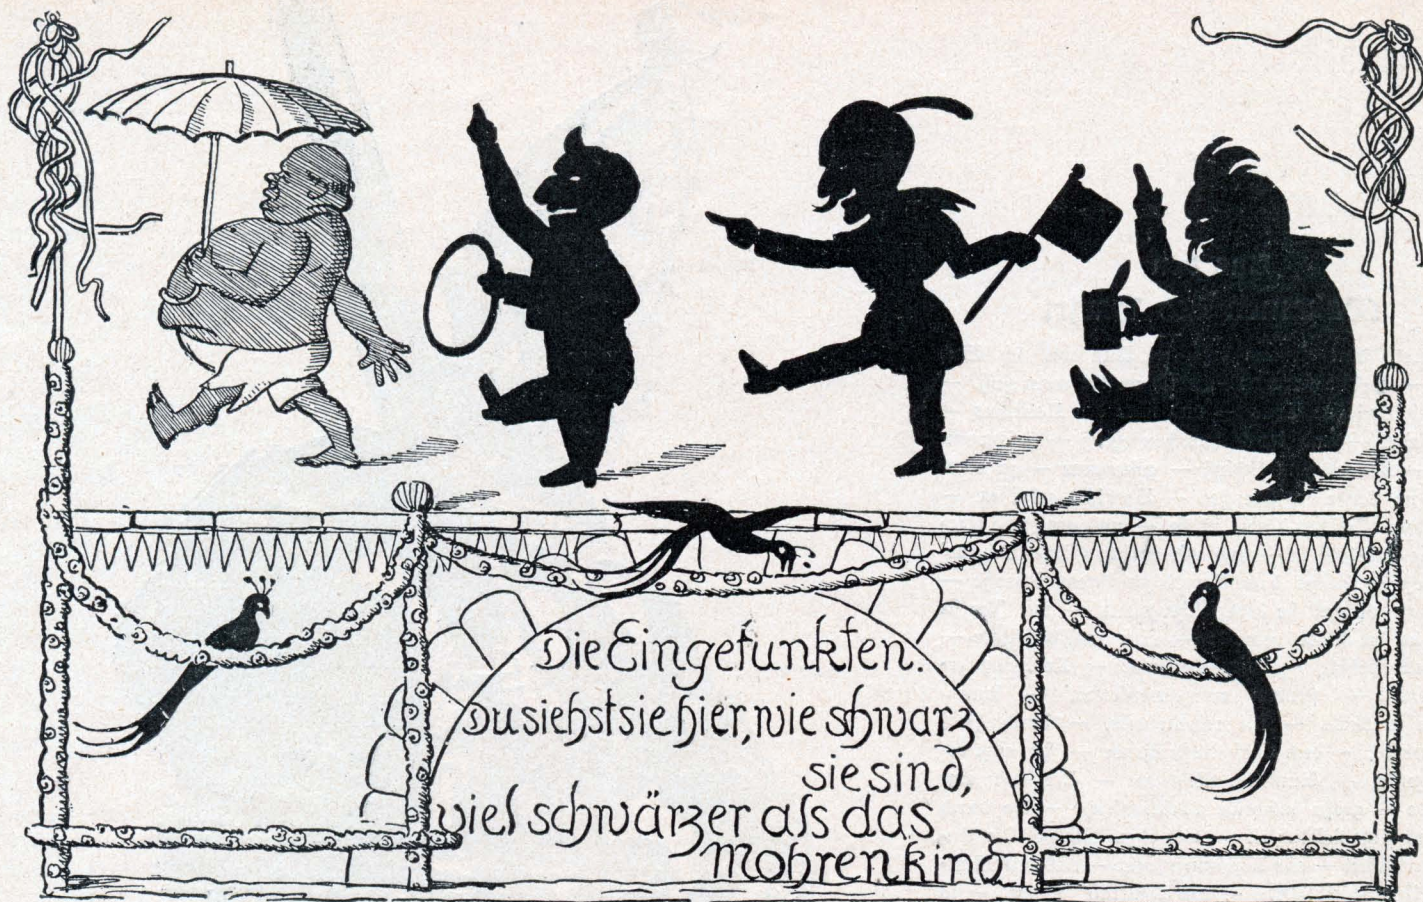 Die Eingetunkten.
Du siehst sie hier, wie schwarz
sie sind,
viel schwärzer als das
Mohrenkind